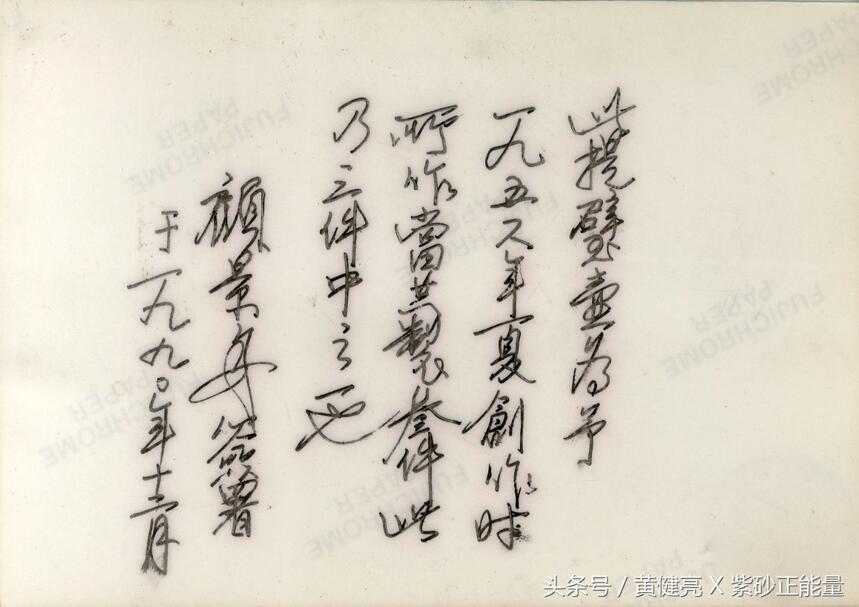 此提璧壺為予
一九五六年夏創作时
所作當共製叁件此
乃三件中之一也
顧景舟簽署
于一九九〇年十二月
FUJICHROME
PAPER
头条号 / 黄健亮 X 紫砂正能量